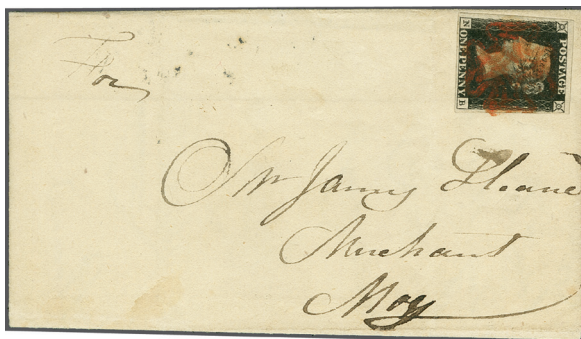 POSTAGE
ONE PENNY
N B
For
Mr James Sloane
Merchant
Moy